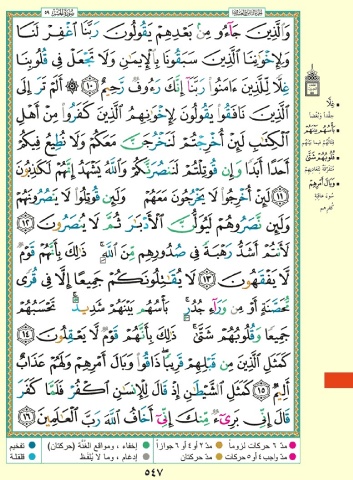 وَٱلَّذِينَ جَآءُو مِنۢ بَعْدِهِمْ يَقُولُونَ رَبَّنَا ٱغْفِرْ لَنَا
وَلِإِخْوَٰنِنَا ٱلَّذِينَ سَبَقُونَا بِٱلْإِيمَٰنِ وَلَا تَجْعَلْ فِى قُلُوبِنَا
غِلًّا لِّلَّذِينَ ءَامَنُوا۟ رَبَّنَآ إِنَّكَ رَءُوفٌ رَّحِيمٌ ١٠ ۞ أَلَمْ تَرَ إِلَى
ٱلَّذِينَ نَافَقُوا۟ يَقُولُونَ لِإِخْوَٰنِهِمُ ٱلَّذِينَ كَفَرُوا۟ مِنْ أَهْلِ
ٱلْكِتَٰبِ لَئِنْ أُخْرِجْتُمْ لَنَخْرُجَنَّ مَعَكُمْ وَلَا نُطِيعُ فِيكُمْ
أَحَدًا أَبَدًا وَإِن قُوتِلْتُمْ لَنَنصُرَنَّكُمْ وَٱللَّهُ يَشْهَدُ إِنَّهُمْ لَكَٰذِبُونَ
١١ لَئِنْ أُخْرِجُوا۟ لَا يَخْرُجُونَ مَعَهُمْ وَلَئِن قُوتِلُوا۟ لَا يَنصُرُونَهُمْ
وَلَئِن نَّصَرُوهُمْ لَيُوَلُّنَّ ٱلْأَدْبَٰرَ ثُمَّ لَا يُنصَرُونَ ١٢
لَأَنتُمْ أَشَدُّ رَهْبَةً فِى صُدُورِهِم مِّنَ ٱللَّهِ ۚ ذَٰلِكَ بِأَنَّهُمْ قَوْمٌ
لَّا يَفْقَهُونَ ١٣ لَا يُقَٰتِلُونَكُمْ جَمِيعًا إِلَّا فِى قُرًى
مُّحَصَّنَةٍ أَوْ مِن وَرَآءِ جُدُرٍۭ ۚ بَأْسُهُم بَيْنَهُمْ شَدِيدٌ ۚ تَحْسَبُهُمْ
جَمِيعًا وَقُلُوبُهُمْ شَتَّىٰ ۚ ذَٰلِكَ بِأَنَّهُمْ قَوْمٌ لَّا يَعْقِلُونَ ١٤
كَمَثَلِ ٱلَّذِينَ مِن قَبْلِهِمْ قَرِيبًا ۖ ذَاقُوا۟ وَبَالَ أَمْرِهِمْ وَلَهُمْ عَذَابٌ
أَلِيمٌ ١٥ كَمَثَلِ ٱلشَّيْطَٰنِ إِذْ قَالَ لِلْإِنسَٰنِ ٱكْفُرْ فَلَمَّا كَفَرَ
قَالَ إِنِّى بَرِىٓءٌ مِّنكَ إِنِّىٓ أَخَافُ ٱللَّهَ رَبَّ ٱلْعَٰلَمِينَ ١٦
غِلًّا
بَأْسُهُمْ بَيْنَهُمْ
قُلُوبُهُمْ شَتَّىٰ
وَبَالَ أَمْرِهِمْ
مدّ ٦ حركات لزوماً
مدّ ٢ أو ٤ أو ٦ جوازاً
إخفاء، ومواقع الغُنَّة (حركتان)
تفخيم
مدّ واجب ٤ أو ٥ حركات
مدّ حركتان
إدغام، وما لا يُلفَظ
قلقلة
٥٤٧